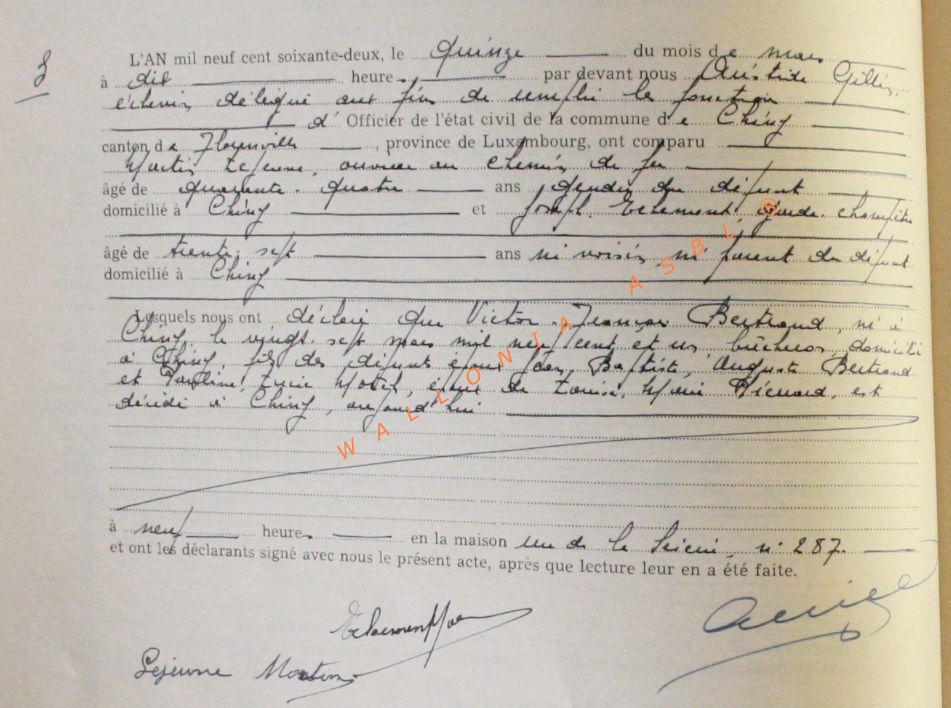 3
L'AN mil neuf cent soixante-deux, le quinze du mois de mars
à dix heures par devant nous Aristide Gillet,
échevin délégué aux fins de remplir la fonction
d' Officier de l'état civil de la commune de Chiny
canton de Florenville, province de Luxembourg, ont comparu
Martin Lejeune, ouvrier au chemin de fer
âgé de quarante-quatre ans, gendre du défunt
domicilié à Chiny et Joseph, garde-champêtre
âgé de trente-sept ans ni voisin, ni parent du défunt
domicilié à Chiny
Lesquels nous ont déclaré que Victor Bertrand, né à
Chiny, le vingt-sept mars mil neuf cent et un, bûcheron, domicilié
à Chiny, fils des défunts époux Jean, Baptiste, Auguste Bertrand
et Pauline, Lucie, époux de Louisa, Marie, est
décédé à Chiny, aujourd'hui
à neuf heures en la maison rue de la, n° 287.
et ont les déclarants signé avec nous le présent acte, après que lecture leur en a été faite.
Lejeune Martin
WALLONIA ASBL ©